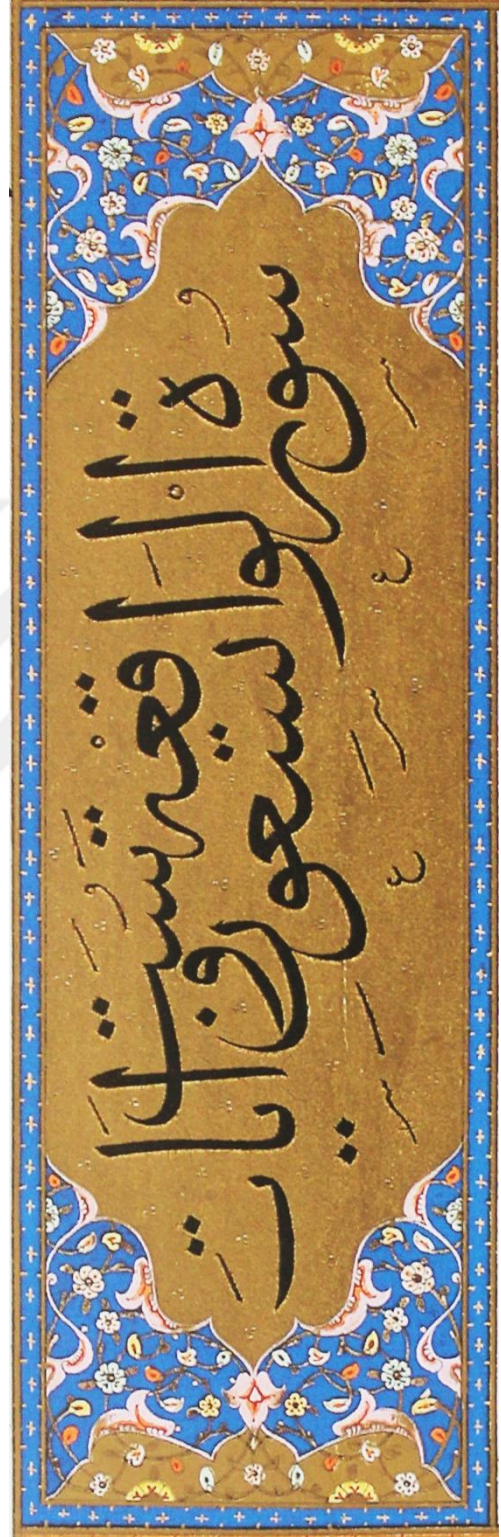 سورة الواقعة ست وتسعون ايات